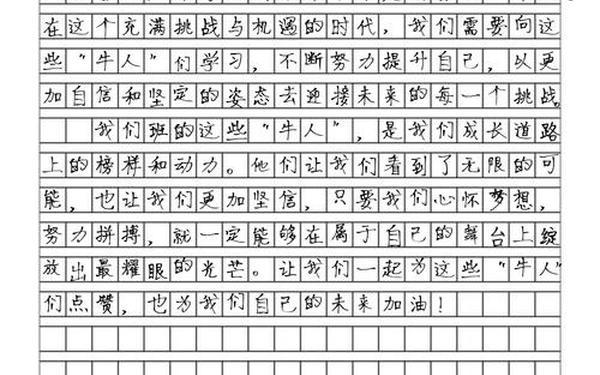 在这个充满挑战与机遇的时代，我们需要向这
些“牛人”们学习，不断努力提升自己，以更
加自信和坚定的姿态去迎接未来的每一个挑战。
我们班的这些“牛人”，是我们成长道路
上的榜样和动力。他们让我们看到了无限的可
能，也让我们更加坚信，只要我们心怀梦想，
努力拼搏，就一定能够在属于自己的舞台上绽
放出最耀眼的光芒。让我们一起为这些“牛人”
们点赞，也为我们自己的未来加油！